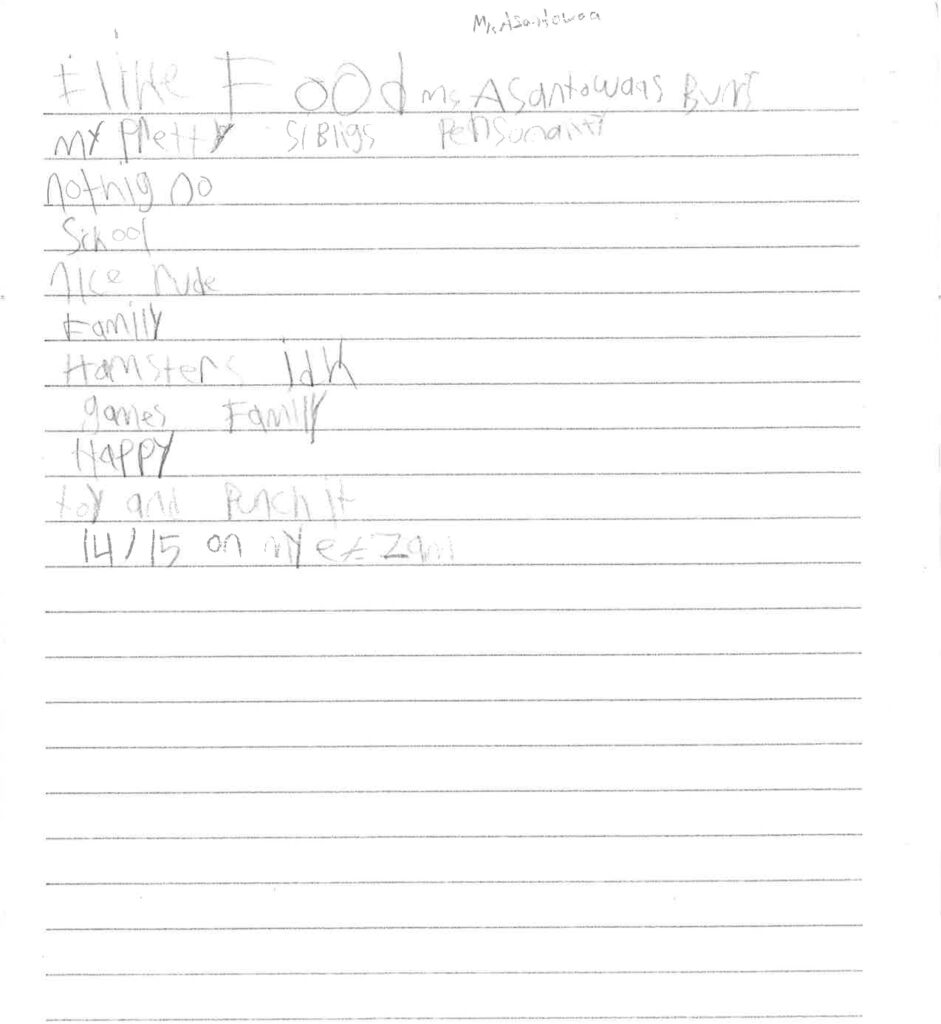 Ms Asantowaa
I like Food ms Asantowaas
my pretty sibligs
nothig no
School
nice rude
Familly
Hamsters idk
games Familly
Happy
toy and Punch it
14/15 on my